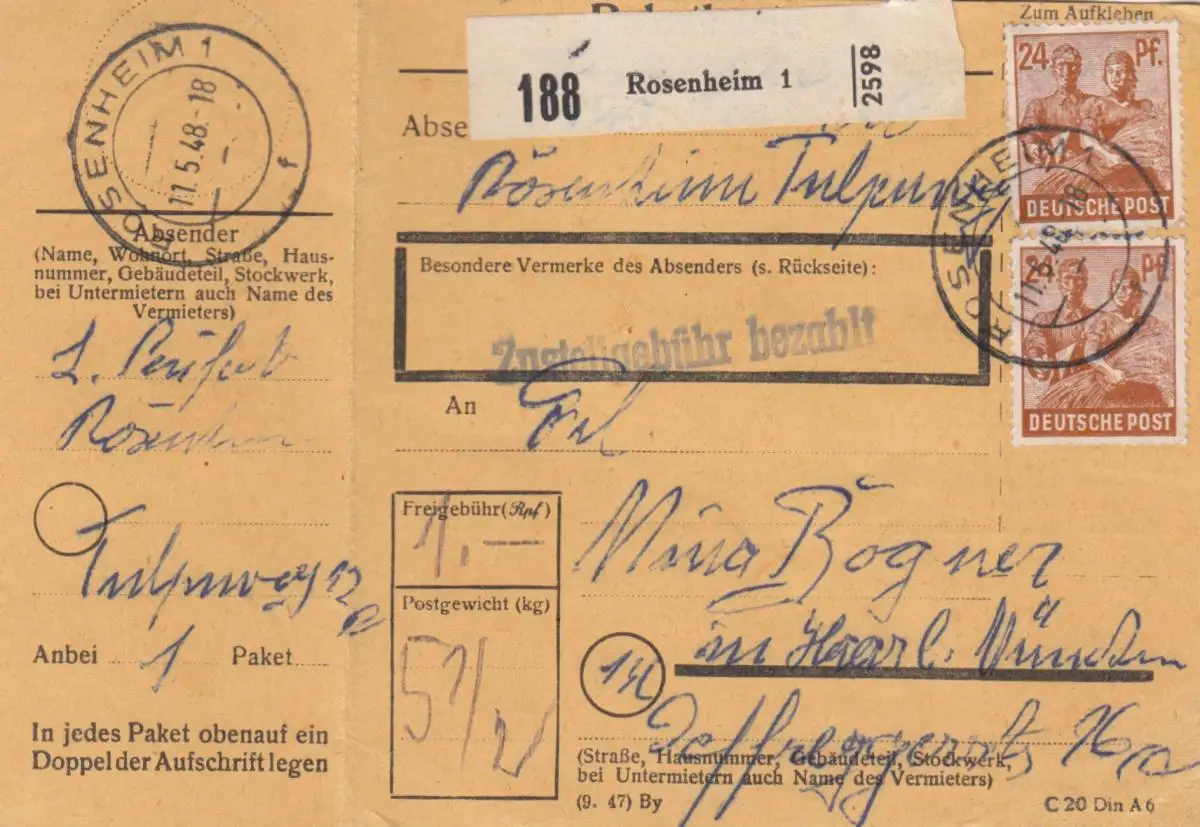 ROSENHEIM 1
11.5.48.-18
f
Absender
(Name, Wohnort, Straße, Haus-
nummer, Gebäudeteil, Stockwerk,
bei Untermietern auch Name des
Vermieters)
L.
Rosenheim
Tulpenweg 12
Anbei 1 Paket
In jedes Paket obenauf ein
Doppel der Aufschrift legen
188 Rosenheim 1 2598
Abse
Rosenheim Tulpenweg
Besondere Vermerke des Absenders (s. Rückseite):
Zustellgebühr bezahlt
An Frl.
Freigebühr (Rpf)
1.—
Postgewicht (kg)
5 1/2
Bogner
in Haar b. München
(Straße, Hausnummer, Gebäudeteil, Stockwerk,
bei Untermietern auch Name des Vermieters)
(9. 47) By
C 20 Din A 6
Zum Aufkleben
24 Pf.
DEUTSCHE POST
ROSENHEIM 1
11.5.48.-18
24 Pf.
DEUTSCHE POST